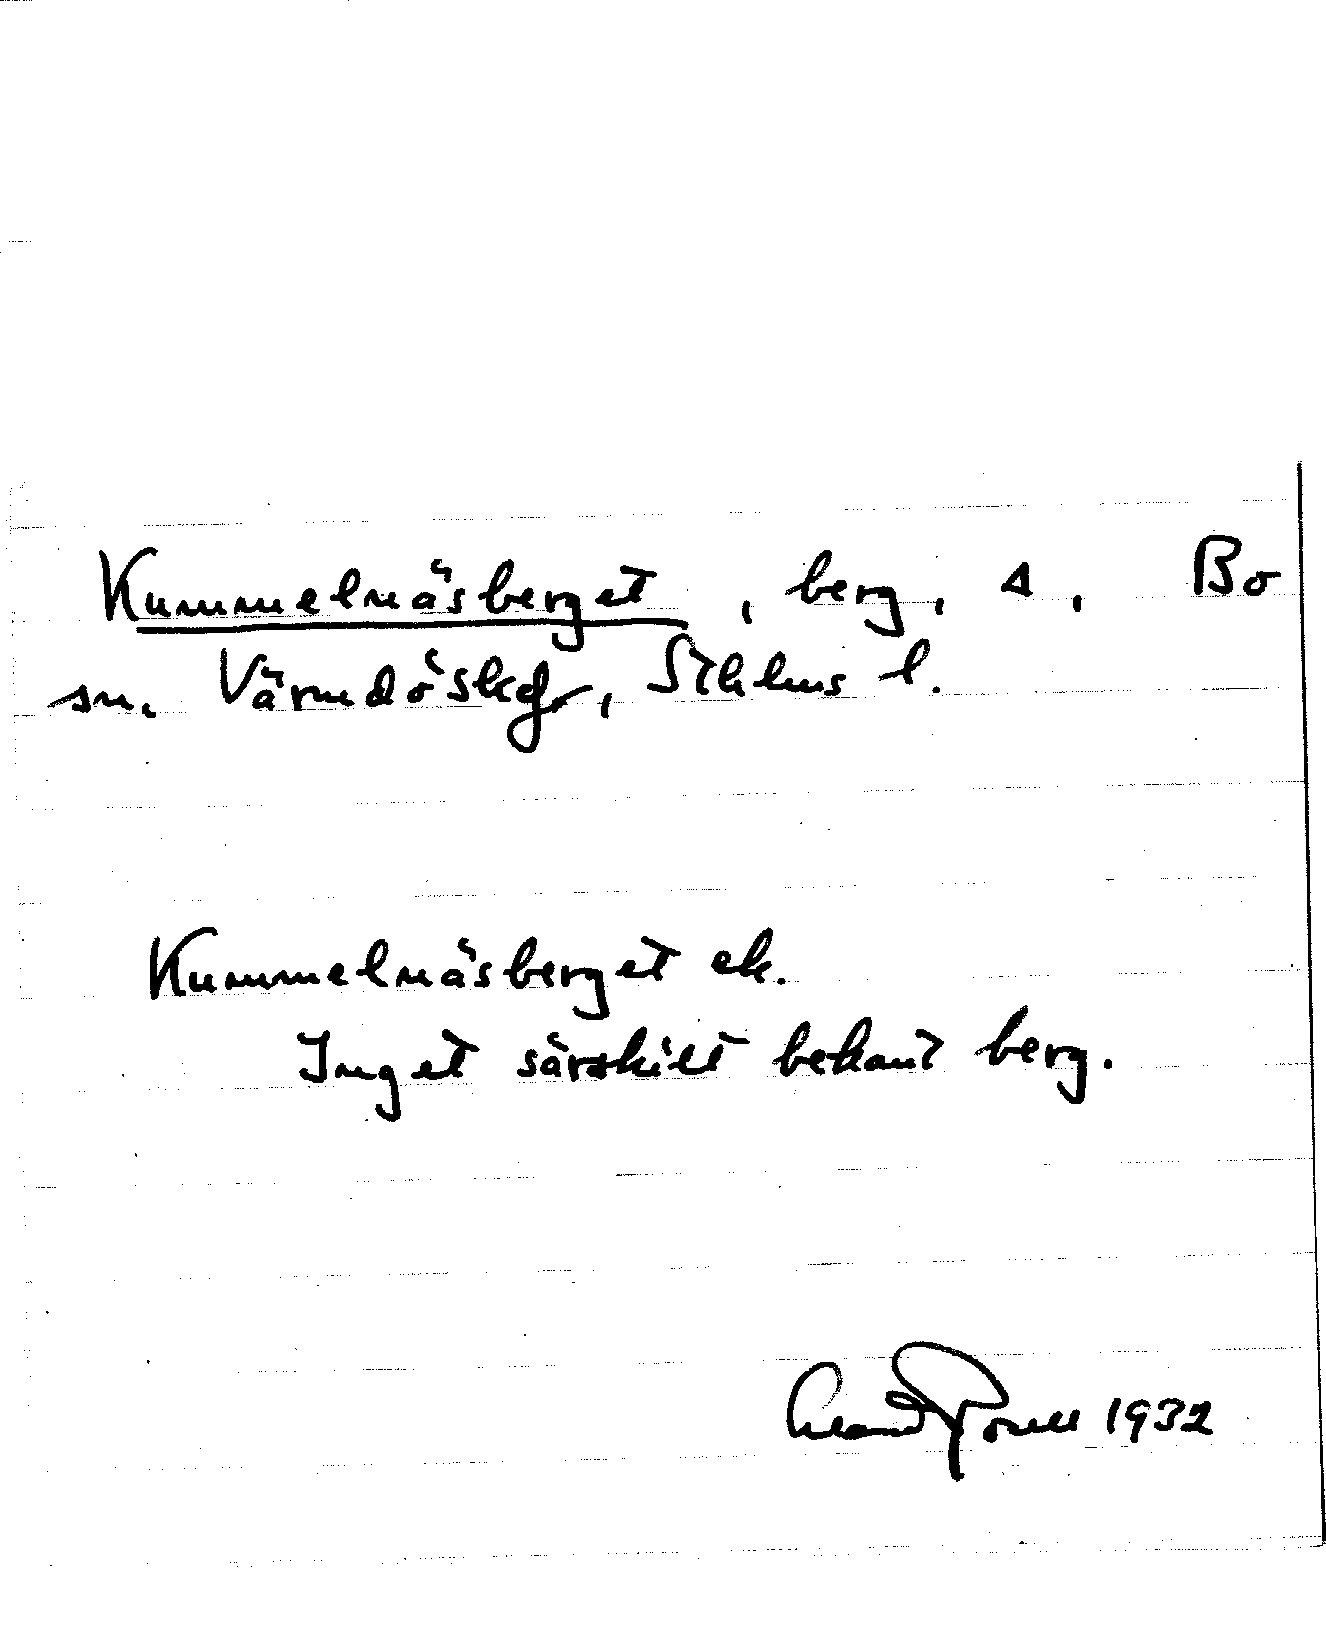 Kummelnäsberget, berg, Δ, Bo
sn. Värmdöskg, Sthlms l.
Kummelnäsberget ek.
Inget särskilt bekant berg.
1932